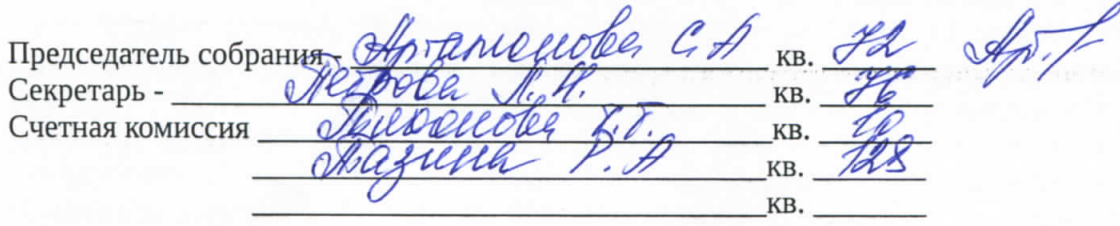 Председатель собрания - Артамонова С А кв. 72
Секретарь - Петрова Л. Н. кв. 76
Счетная комиссия Т.Т. кв. 10
Мазина Р. А кв. 128
кв.